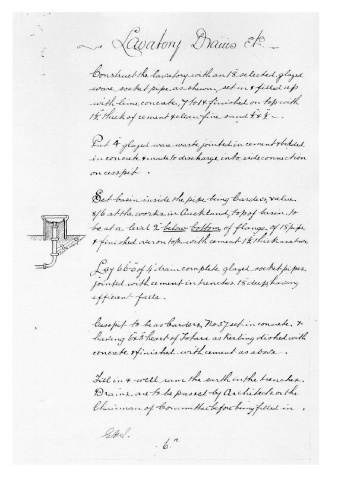 Lavatory Drains etc.
Construct the lavatory with an 18" selected glazed
ware socket pipe, as shewn, set in & filled up
with lime concrete, 7 to 1 & finished on top with
1½" thick of cement & clean fine sand
Put 4" glazed ware waste jointed in cement & bedded
in concrete & made to discharge into side connection
on cesspit.
Set basin inside the pipe being Carder's, value
at the works in Auckland, top of basin to
be at a level 2" below bottom of flange of 18" pipe
& finished over on top with cement 1½" thick
Lay 66'0" of 4" drain complete glazed socket pipes
jointed with cement in trenches 18" deep having
efficient falls.
Cesspit to be as Carders, No 37 set in concrete, &
having 6x3 heart of Totara as kerbing with
concrete & finished with cement as above.
Fill in & well ram the earth in the trenches.
Drains are to be passed by Architect or the
Chairman of Committee before being filled in.
6"